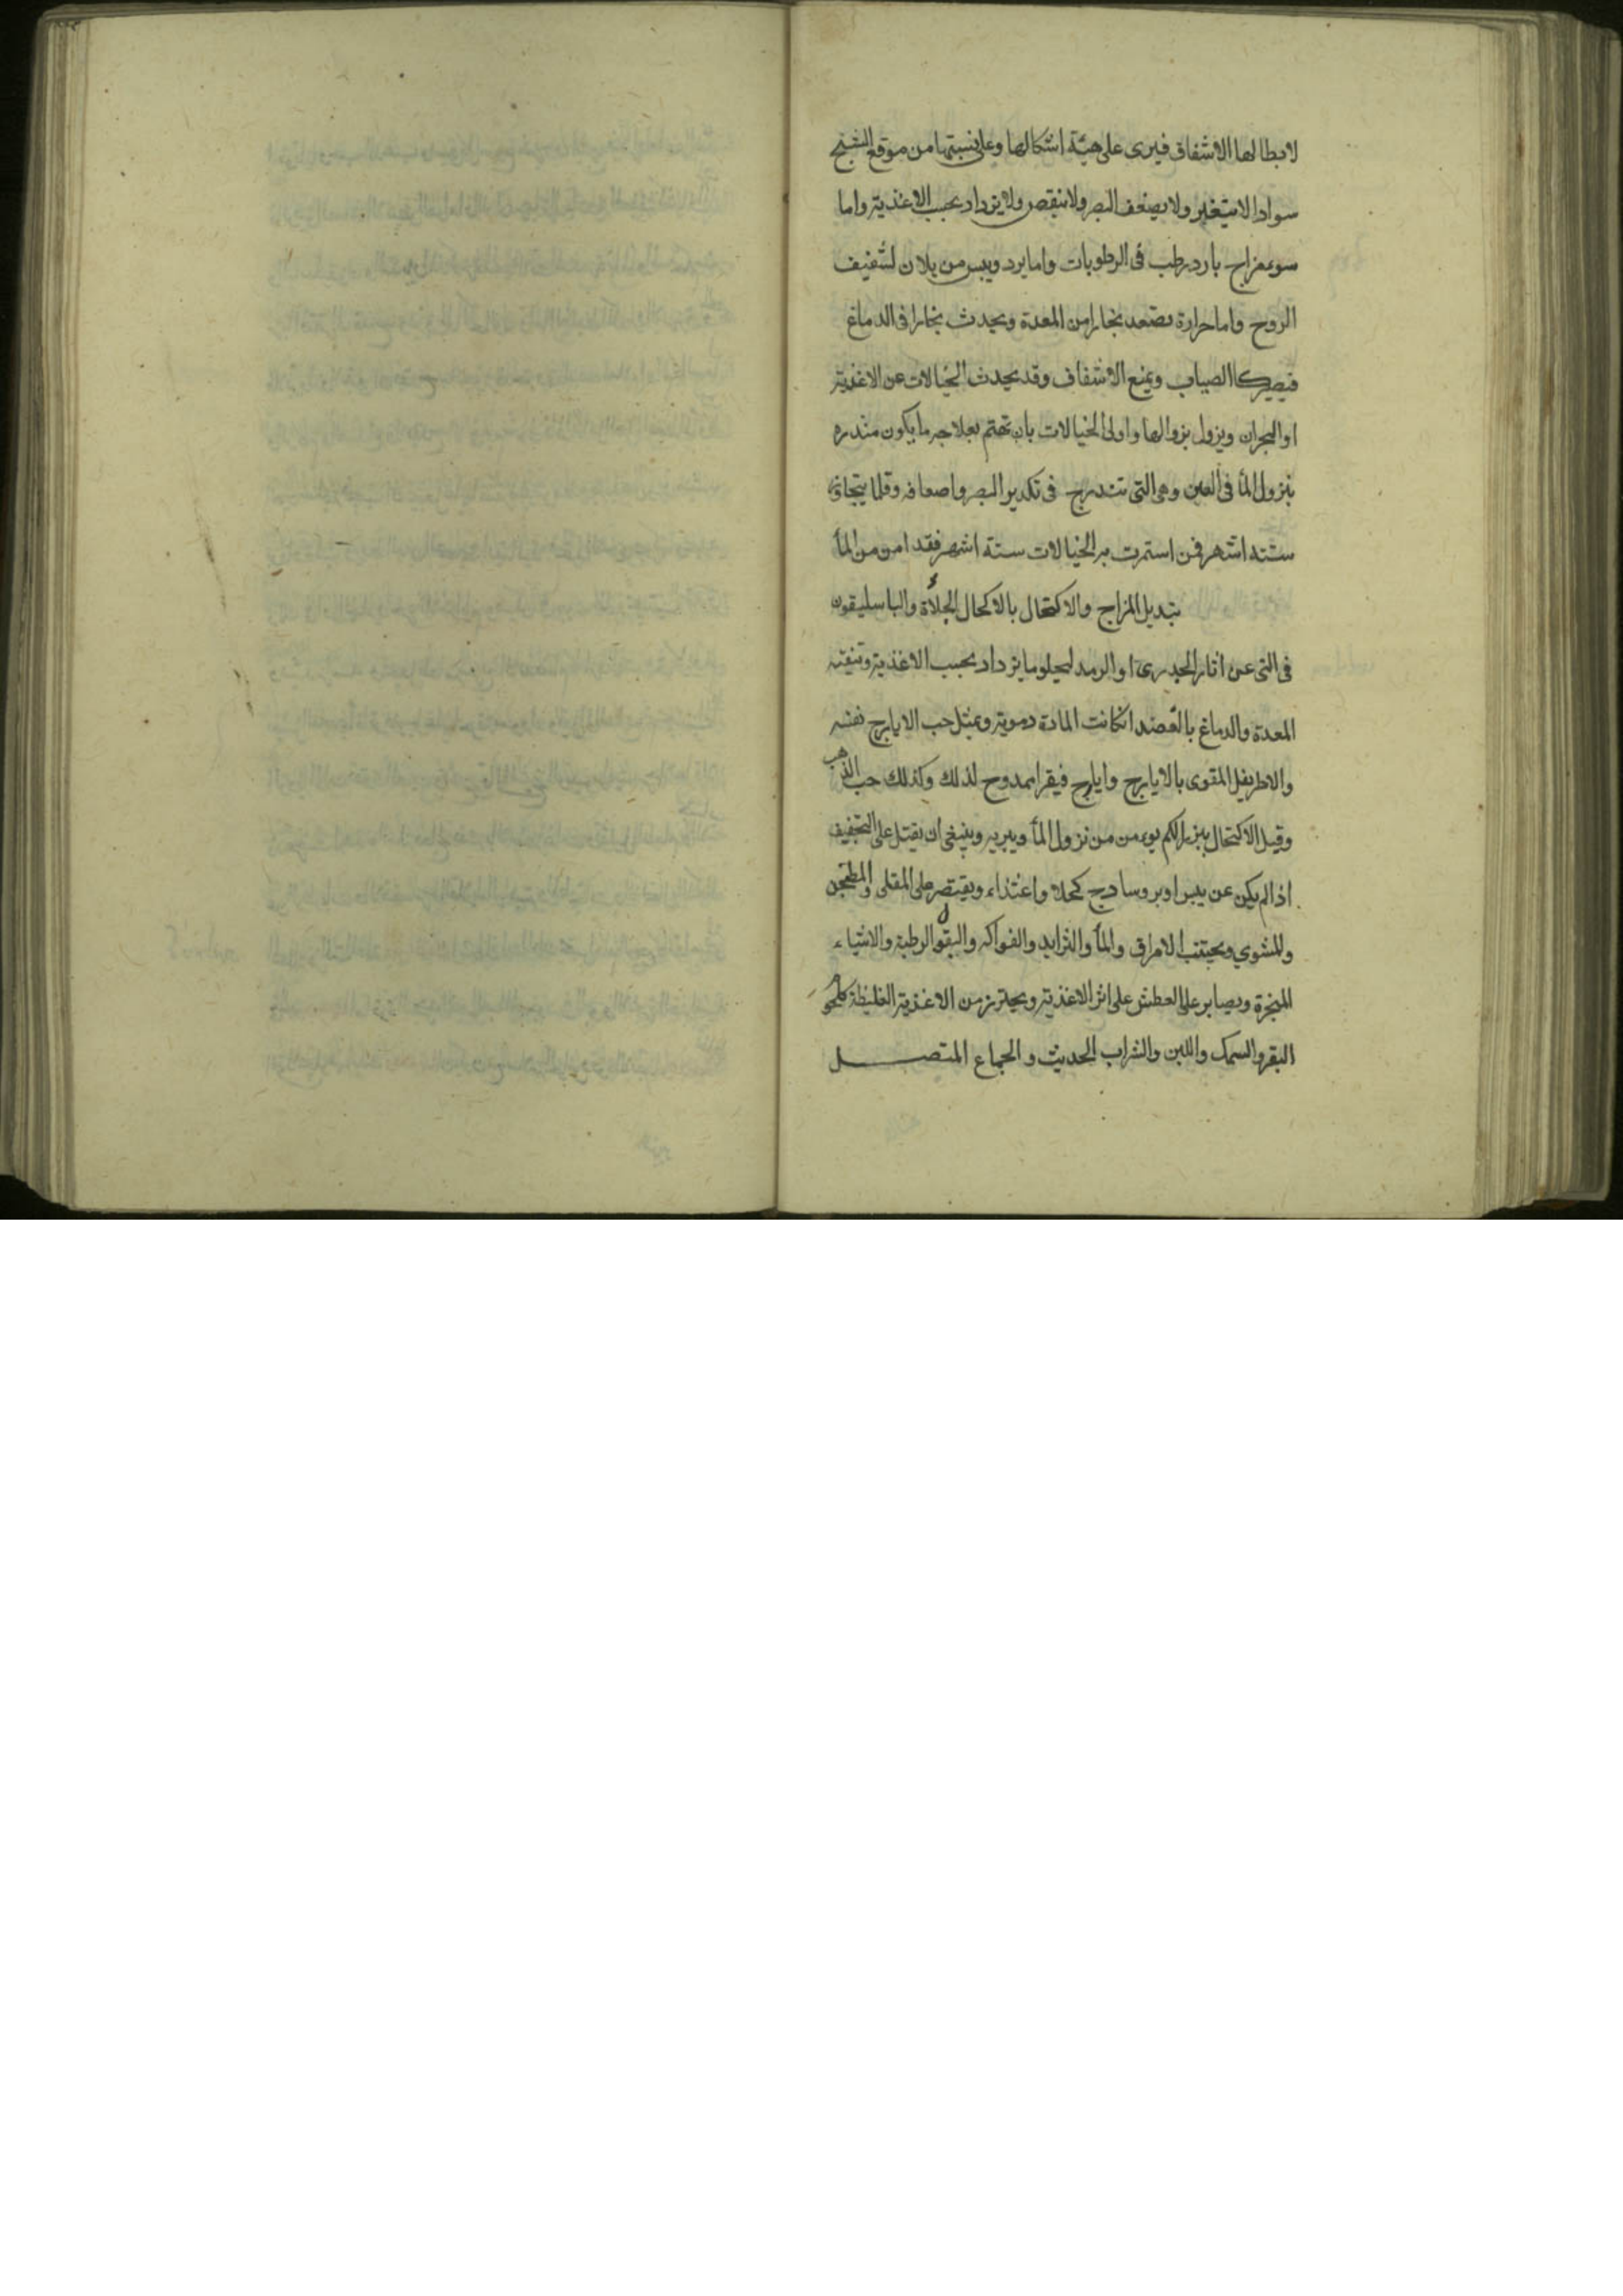 لابطالها الاشفاف فيرى على هيئة اشكالها وعلى نسبتها من موقع الشبح
سوادا لا يتغير ولا يضعف البصر ولا ينقص ولا يزداد بحسب الاغذية واما
سوء مزاج بارد رطب فى الرطوبات واما برد ويبس من يلان لشفيف
الروح واما حرارة تصعد بخارا من المعدة ويحدث بخارا فى الدماغ
فيصير كالضباب ويمنع الاشفاف وقد يحدث الخيالات عن الاغذية
او البحران ويزول بزوالها واولى الخيالات بان تهتم بعلاجه ما يكون منذره
بنزول المأ فى العين وهى التى تتدرج فى تكدير البصر واضعافه وقلما يتجاوز
ستة اشهر فمن استمرت به الخيالات ستة اشهر فقد امن من المأ
بتبديل المزاج والاكتحال بالاكحال الجلاءة والباسليقون
فى التى عن اثار الجدرى او الرمد ليجلو ما يزداد بحسب الاغذية وتنقيته
المعدة والدماغ بالفصد انكانت المادة دموية وبمثل حب الايارج نفسه
والاطريفل المقوى بالايارج وايارج فيقرا ممدوح لذلك وكذلك حب الذهب
وقيل الاكتحال ببزر الكم يومن من نزول المأ ويبريه وينبغى ان يقبل على التجفيف
اذا لم يكن عن يبس او برد سادج كحلا واغتذاء ويقتصر على المقلى والمطجن
والمشوي ويجتنب الامراق والمأ والثرايد والفواكه والبقول الرطبة والاشياء
المبخرة ويصابر على العطش على اثر الاغذية ويحترز من الاغذية الغليظة كلحم
البقر والسمك واللبن والشراب الحديث و الجماع المتصل